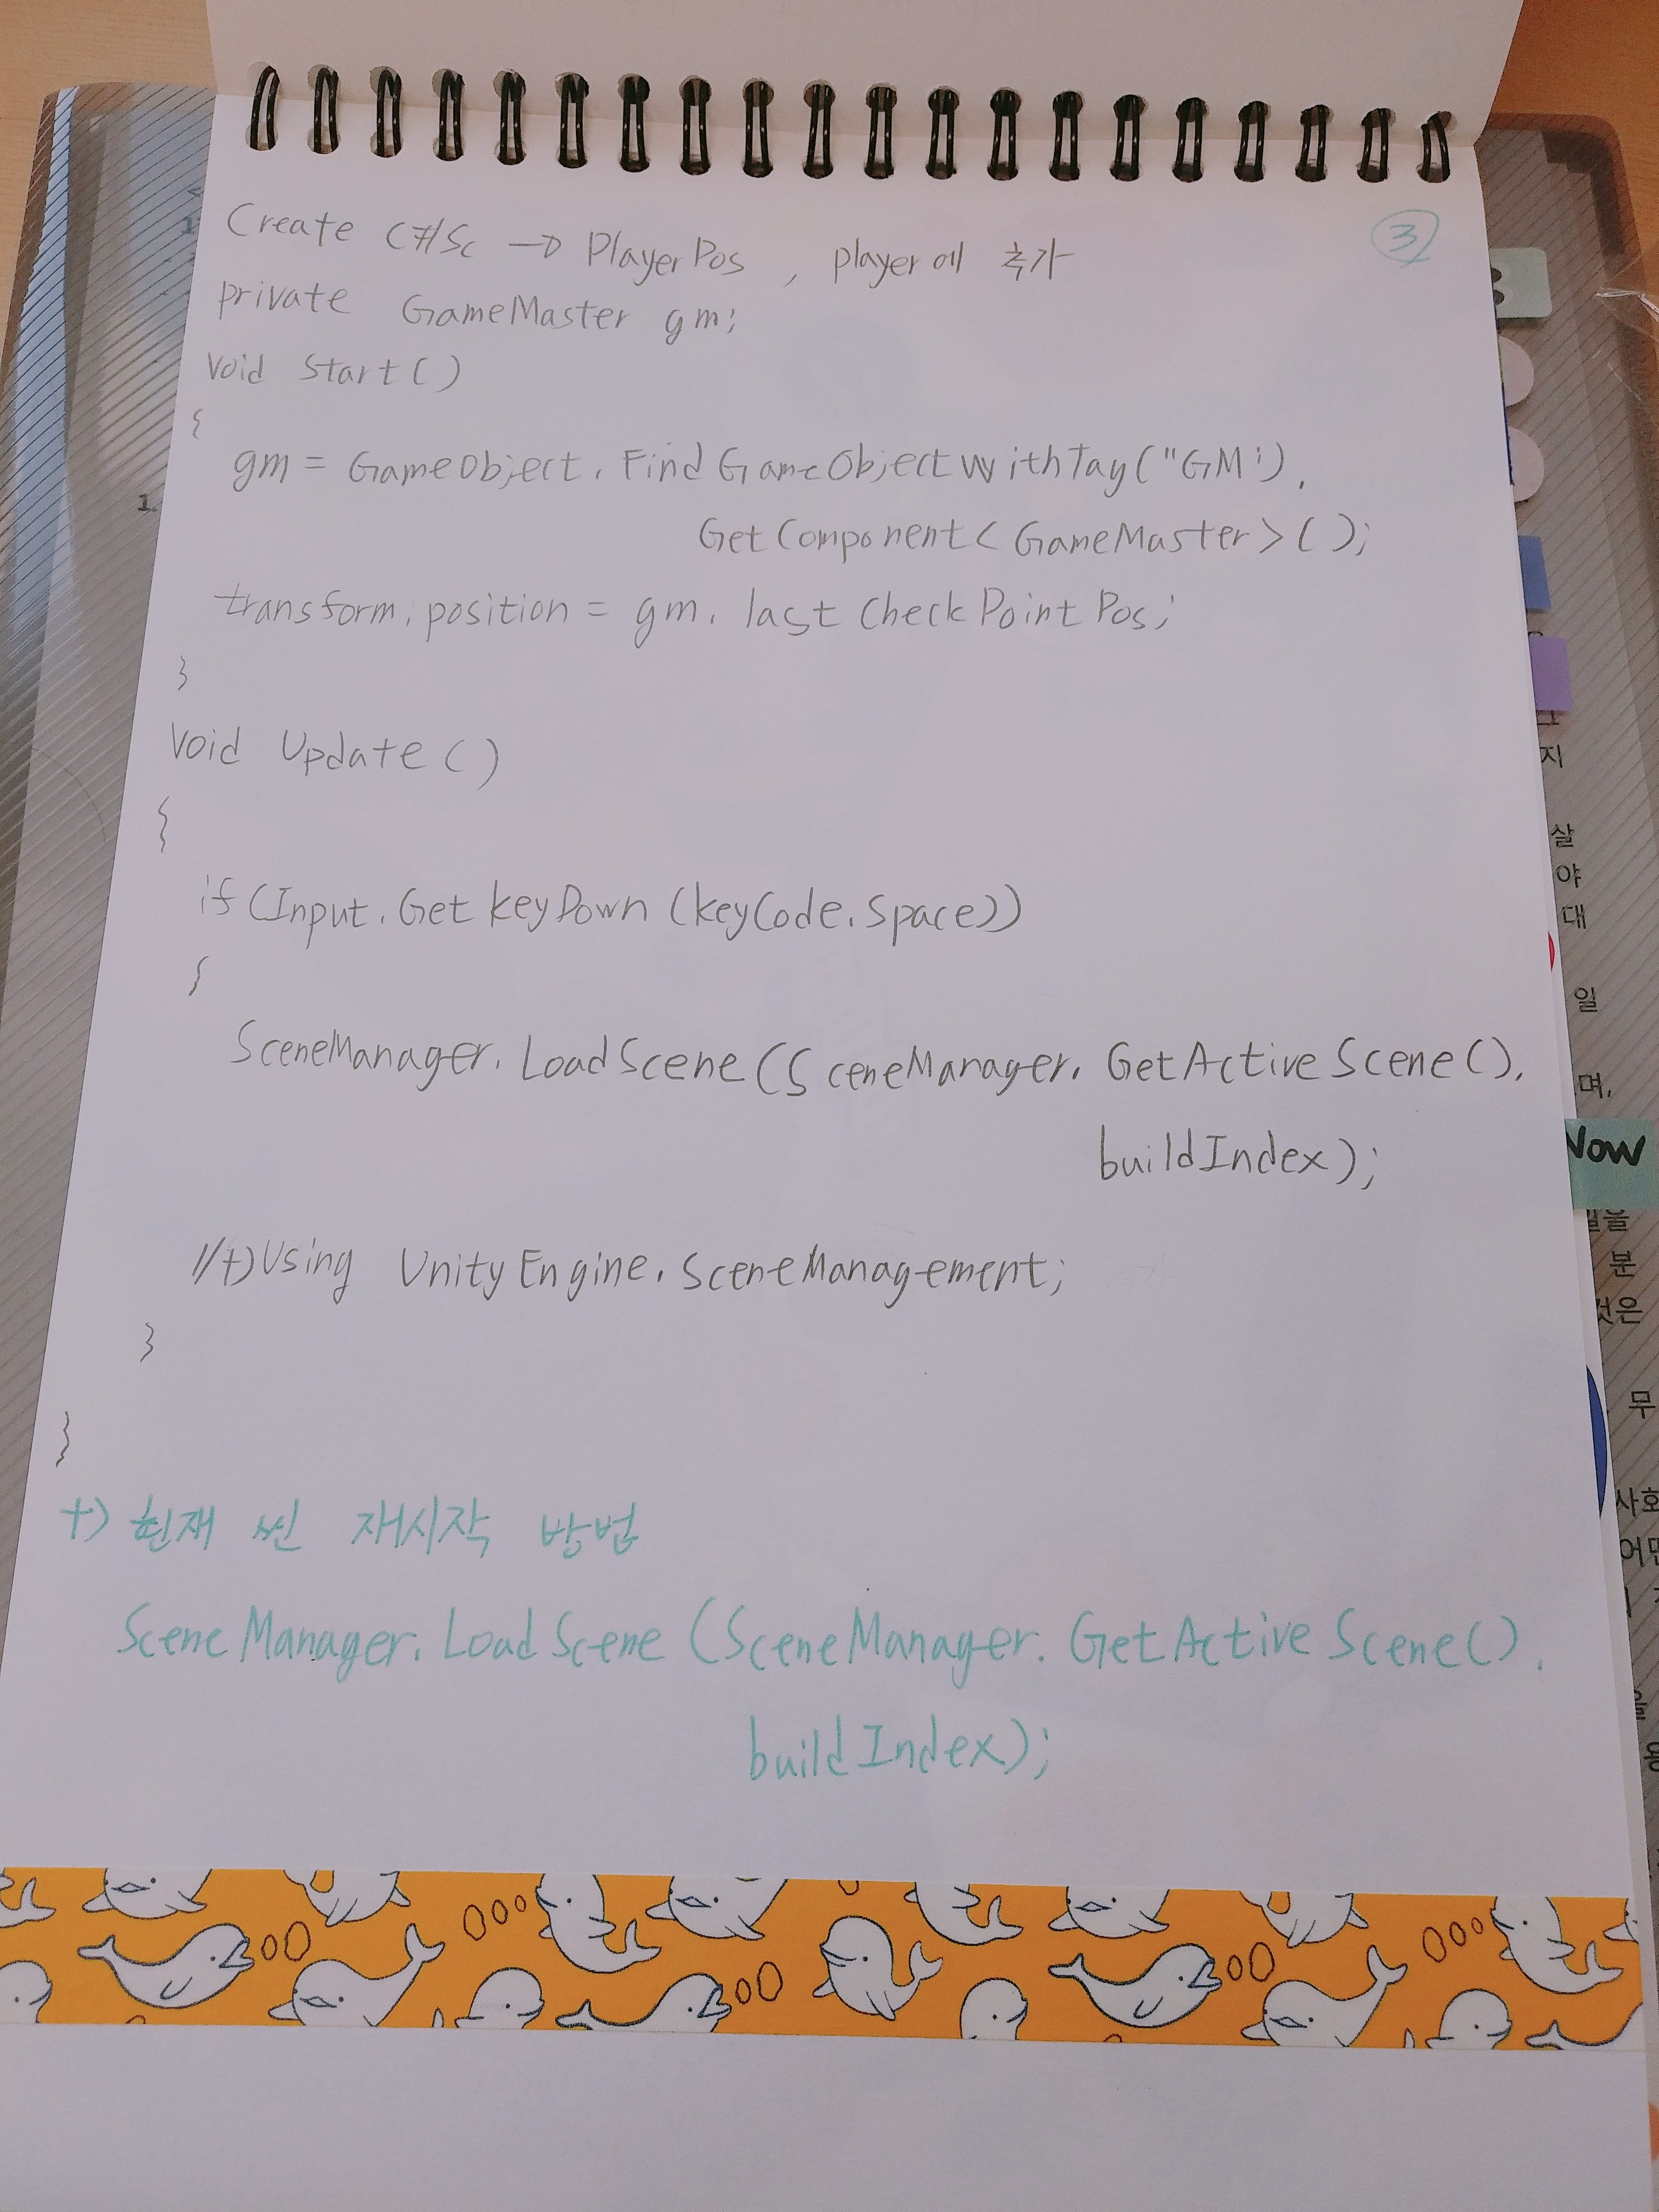 ③
Create C#Sc → PlayerPos , player에 추가
private GameMaster gm;
void Start()
{
gm = GameObject.FindGameObjectWithTag("GM").
GetComponent<GameMaster>();
transform.position = gm.lastCheckPointPos;
}
Void Update()
{
if (Input.GetkeyDown(keyCode.Space))
{
SceneManager.LoadScene(SceneManager.GetActiveScene().
buildIndex);
//+)Using UnityEngine.SceneManagement;
}
}
+) 현재 씬 재시작 방법
SceneManager.LoadScene(SceneManager.GetActiveScene().
buildIndex);
1.
지
살
야
대
일
며,
Now
분
것은
무
사회